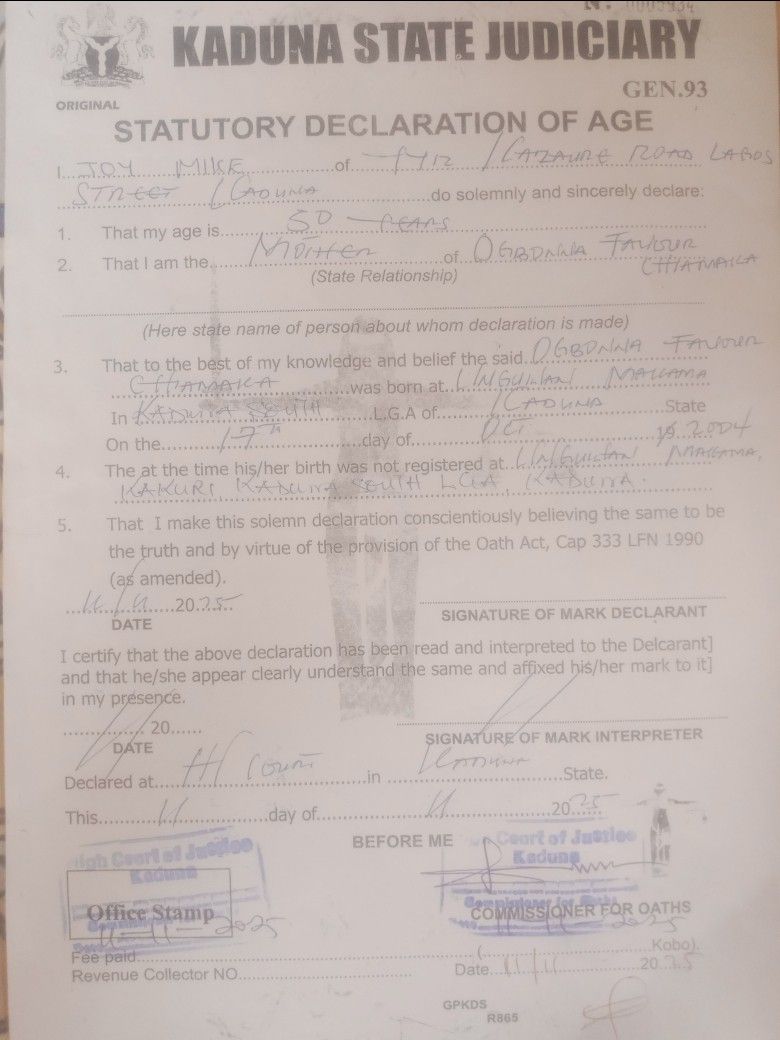 N: 0005934
KADUNA STATE JUDICIARY
GEN.93
ORIGINAL
STATUTORY DECLARATION OF AGE
I...JOY MIKE...of...ROAD LAGOS
STREET KADUNA...do solemnly and sincerely declare:
1. That my age is...50 YEARS
2. That I am the...MOTHER...of. OGBONNA FAVOUR
CHIAMAKA
(State Relationship)
(Here state name of person about whom declaration is made)
3. That to the best of my knowledge and belief the said. OGBONNA FAVOUR
CHIAMAKA...was born at...UNGUWAN MAIGAMA
In KADUNA SOUTH...L.G.A of...KADUNA...State
On the...17TH...day of...OCT...2004
4. The at the time his/her birth was not registered at UNGUWAN MAIGAMA,
KAKURI, KADUNA SOUTH LGA, KADUNA.
5. That I make this solemn declaration conscientiously believing the same to be
the truth and by virtue of the provision of the Oath Act, Cap 333 LFN 1990
(as amended).
11/11...2025
DATE
SIGNATURE OF MARK DECLARANT
I certify that the above declaration has been read and interpreted to the Delcarant]
and that he/she appear clearly understand the same and affixed his/her mark to it]
in my presence.
...20......
DATE
SIGNATURE OF MARK INTERPRETER
Declared at...H/COURT...in...KADUNA...State.
This...11...day of...11...2025
BEFORE ME
High Court of Justice
Kaduna
Office Stamp
11-11-2025
Court of Justice
Kaduna
Commissioner for Oaths
COMMISSIONER FOR OATHS
11-11-2025
Fee paid...(...Kobo).
Revenue Collector NO...
Date...11/11...2025
GPKDS
R865